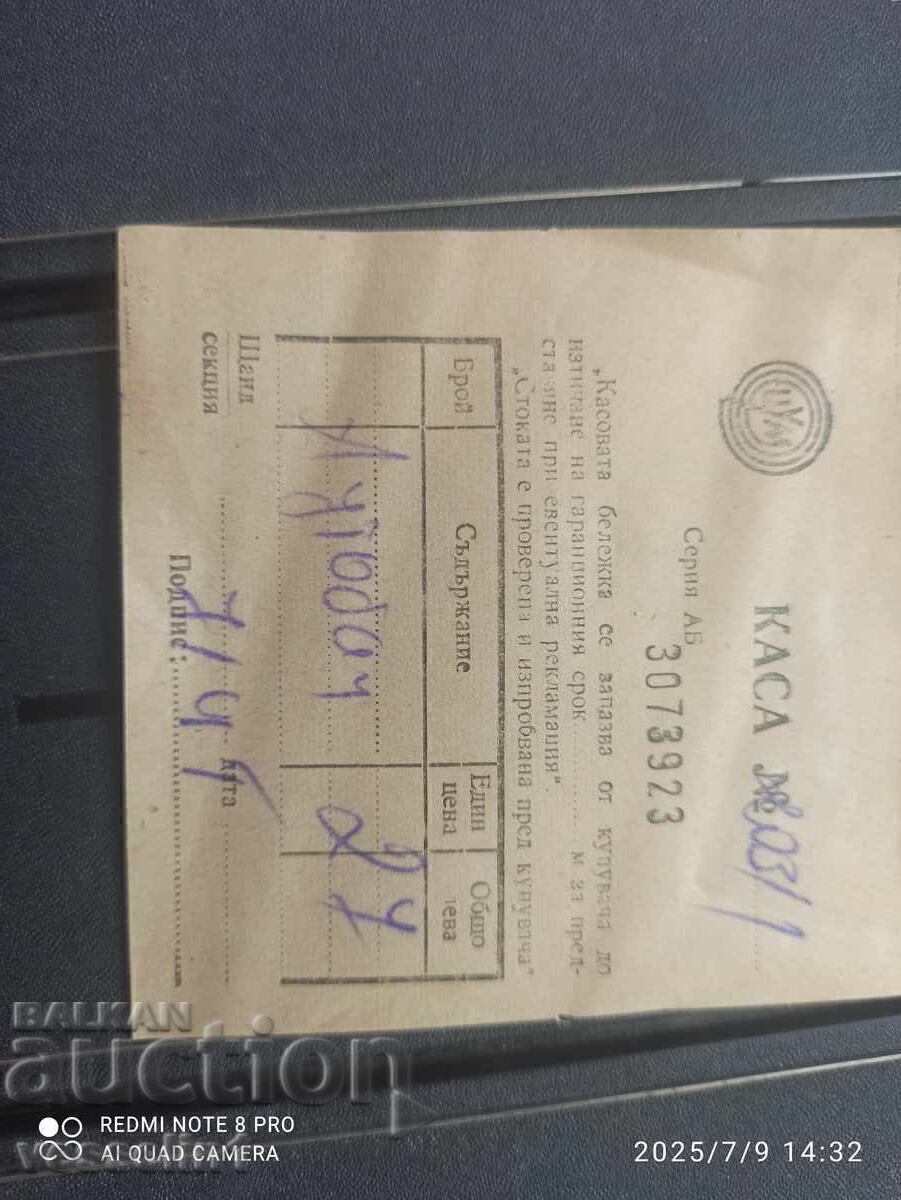 ЦУМ
КАСА №
Серия АБ
3073923
„Касовата бележка се запазва от купувача до
изтичане на гаранционния срок ......... м за пред-
ставяне при евентуална рекламация“.
„Стоката е проверена и изпробвана пред купувача“
Брой Съдържание Един цена Общо лева
27
Щанд
секция
дата
Подпис:
BALKAN
auction
veselin1
REDMI NOTE 8 PRO
AI QUAD CAMERA
2025/7/9 14:32